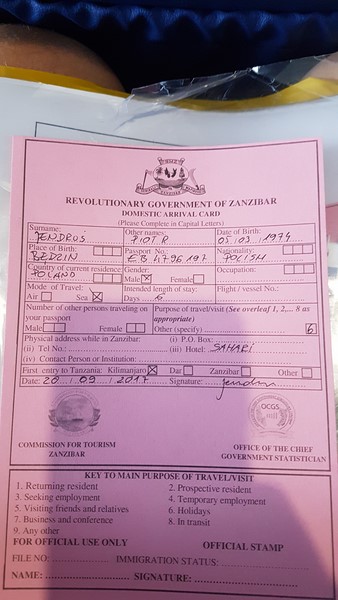 REVOLUTIONARY GOVERNMENT OF ZANZIBAR
DOMESTIC ARRIVAL CARD
(Please Complete in Capital Letters)
Surname: Other names: Date of Birth:
JENDRUŚ PIOTR 05.03.1974
Place of Birth: Passport No.: Nationality:
BĘDZIN EB4796197 POLISH
Country of current residence: Gender: Occupation:
POLAND Male X Female
Mode of Travel: Intended length of stay: Flight / vessel No.:
Air Sea X Days 6
Number of other persons traveling on your passport
Purpose of travel/visit (See overleaf 1, 2,... 8 as appropriate)
Male Female Other (specify) 6
Physical address while in Zanzibar: (i) P.O. Box:
(ii) Tel No.: (iii) Hotel: SAHARI
(iv) Contact Person or Institution:
First entry to Tanzania: Kilimanjaro X Dar Zanzibar Other
Date: 20 / 09 / 2017 Signature:
OCGS
COMMISSION FOR TOURISM
ZANZIBAR
OFFICE OF THE CHIEF
GOVERNMENT STATISTICIAN
KEY TO MAIN PURPOSE OF TRAVEL/VISIT
1. Returning resident 2. Prospective resident
3. Seeking employment 4. Temporary employment
5. Visiting friends and relatives 6. Holidays
7. Business and conference 8. In transit
9. Any other
FOR OFFICIAL USE ONLY OFFICIAL STAMP
FILE NO: IMMIGRATION STATUS:
NAME: SIGNATURE: